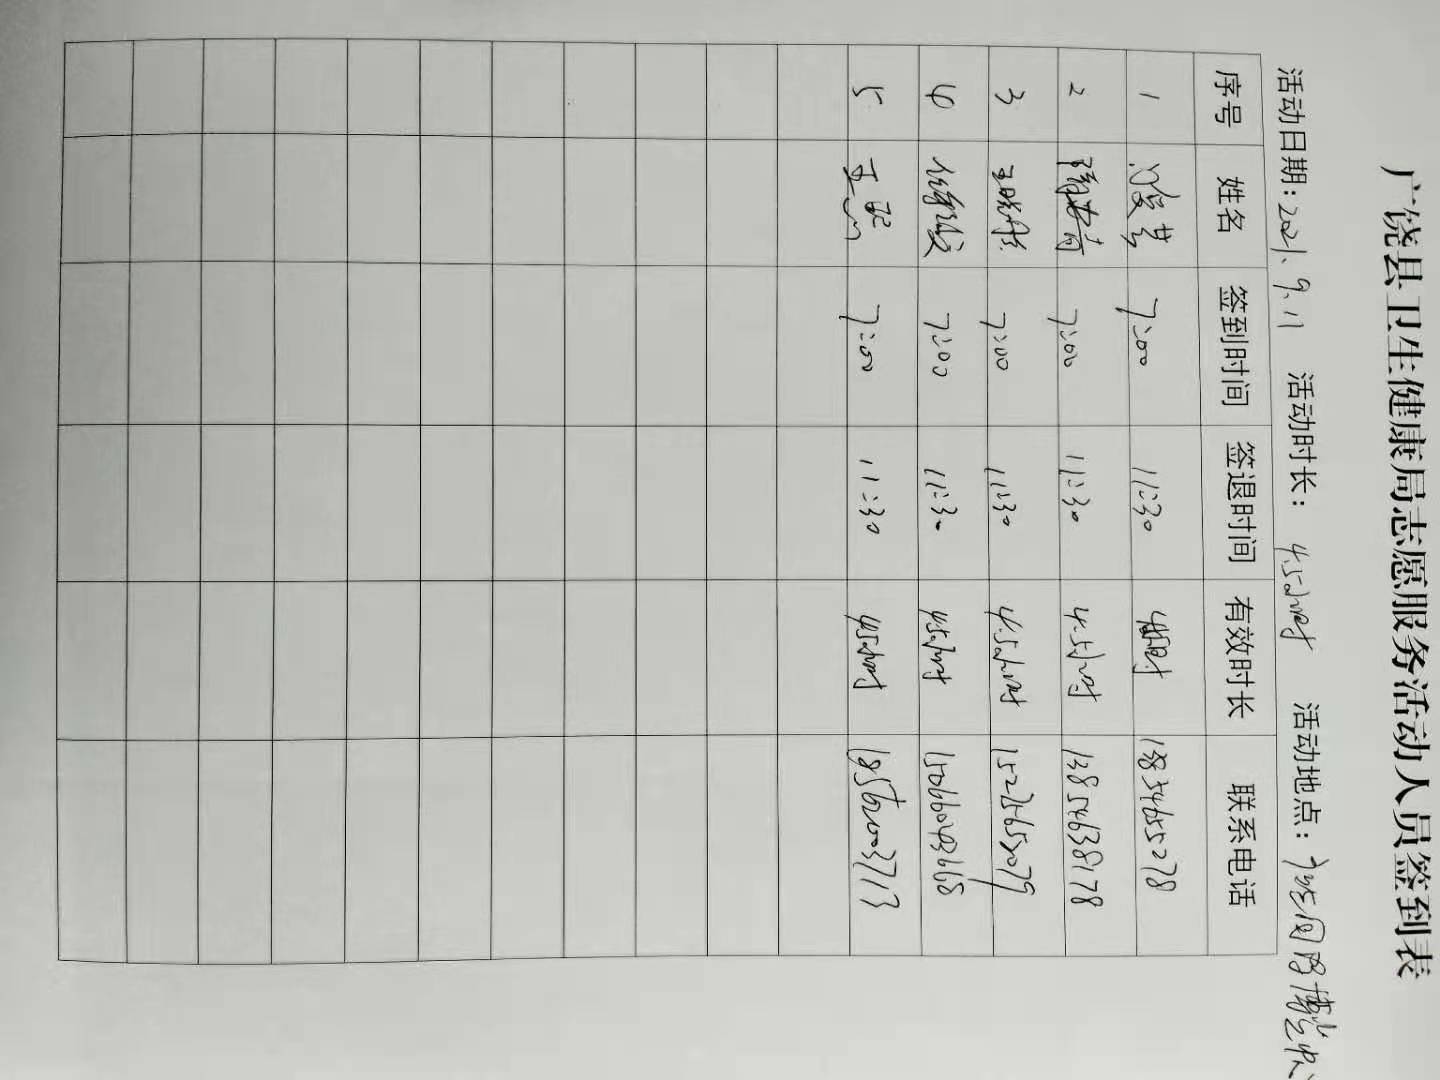 广饶县卫生健康局志愿服务活动人员签到表
活动日期：2021、9、11 活动时长： 4.5小时 活动地点：
序号 姓名 签到时间 签退时间 有效时长 联系电话
1 7:00 11:30 18854655278
2 7:00 11:30 4.5小时 13854638178
3 7:00 11:30 4.5小时 15275655079
4 7:00 11:30 4.5小时 15066043668
5 7:00 11:30 4.5小时 18562003713